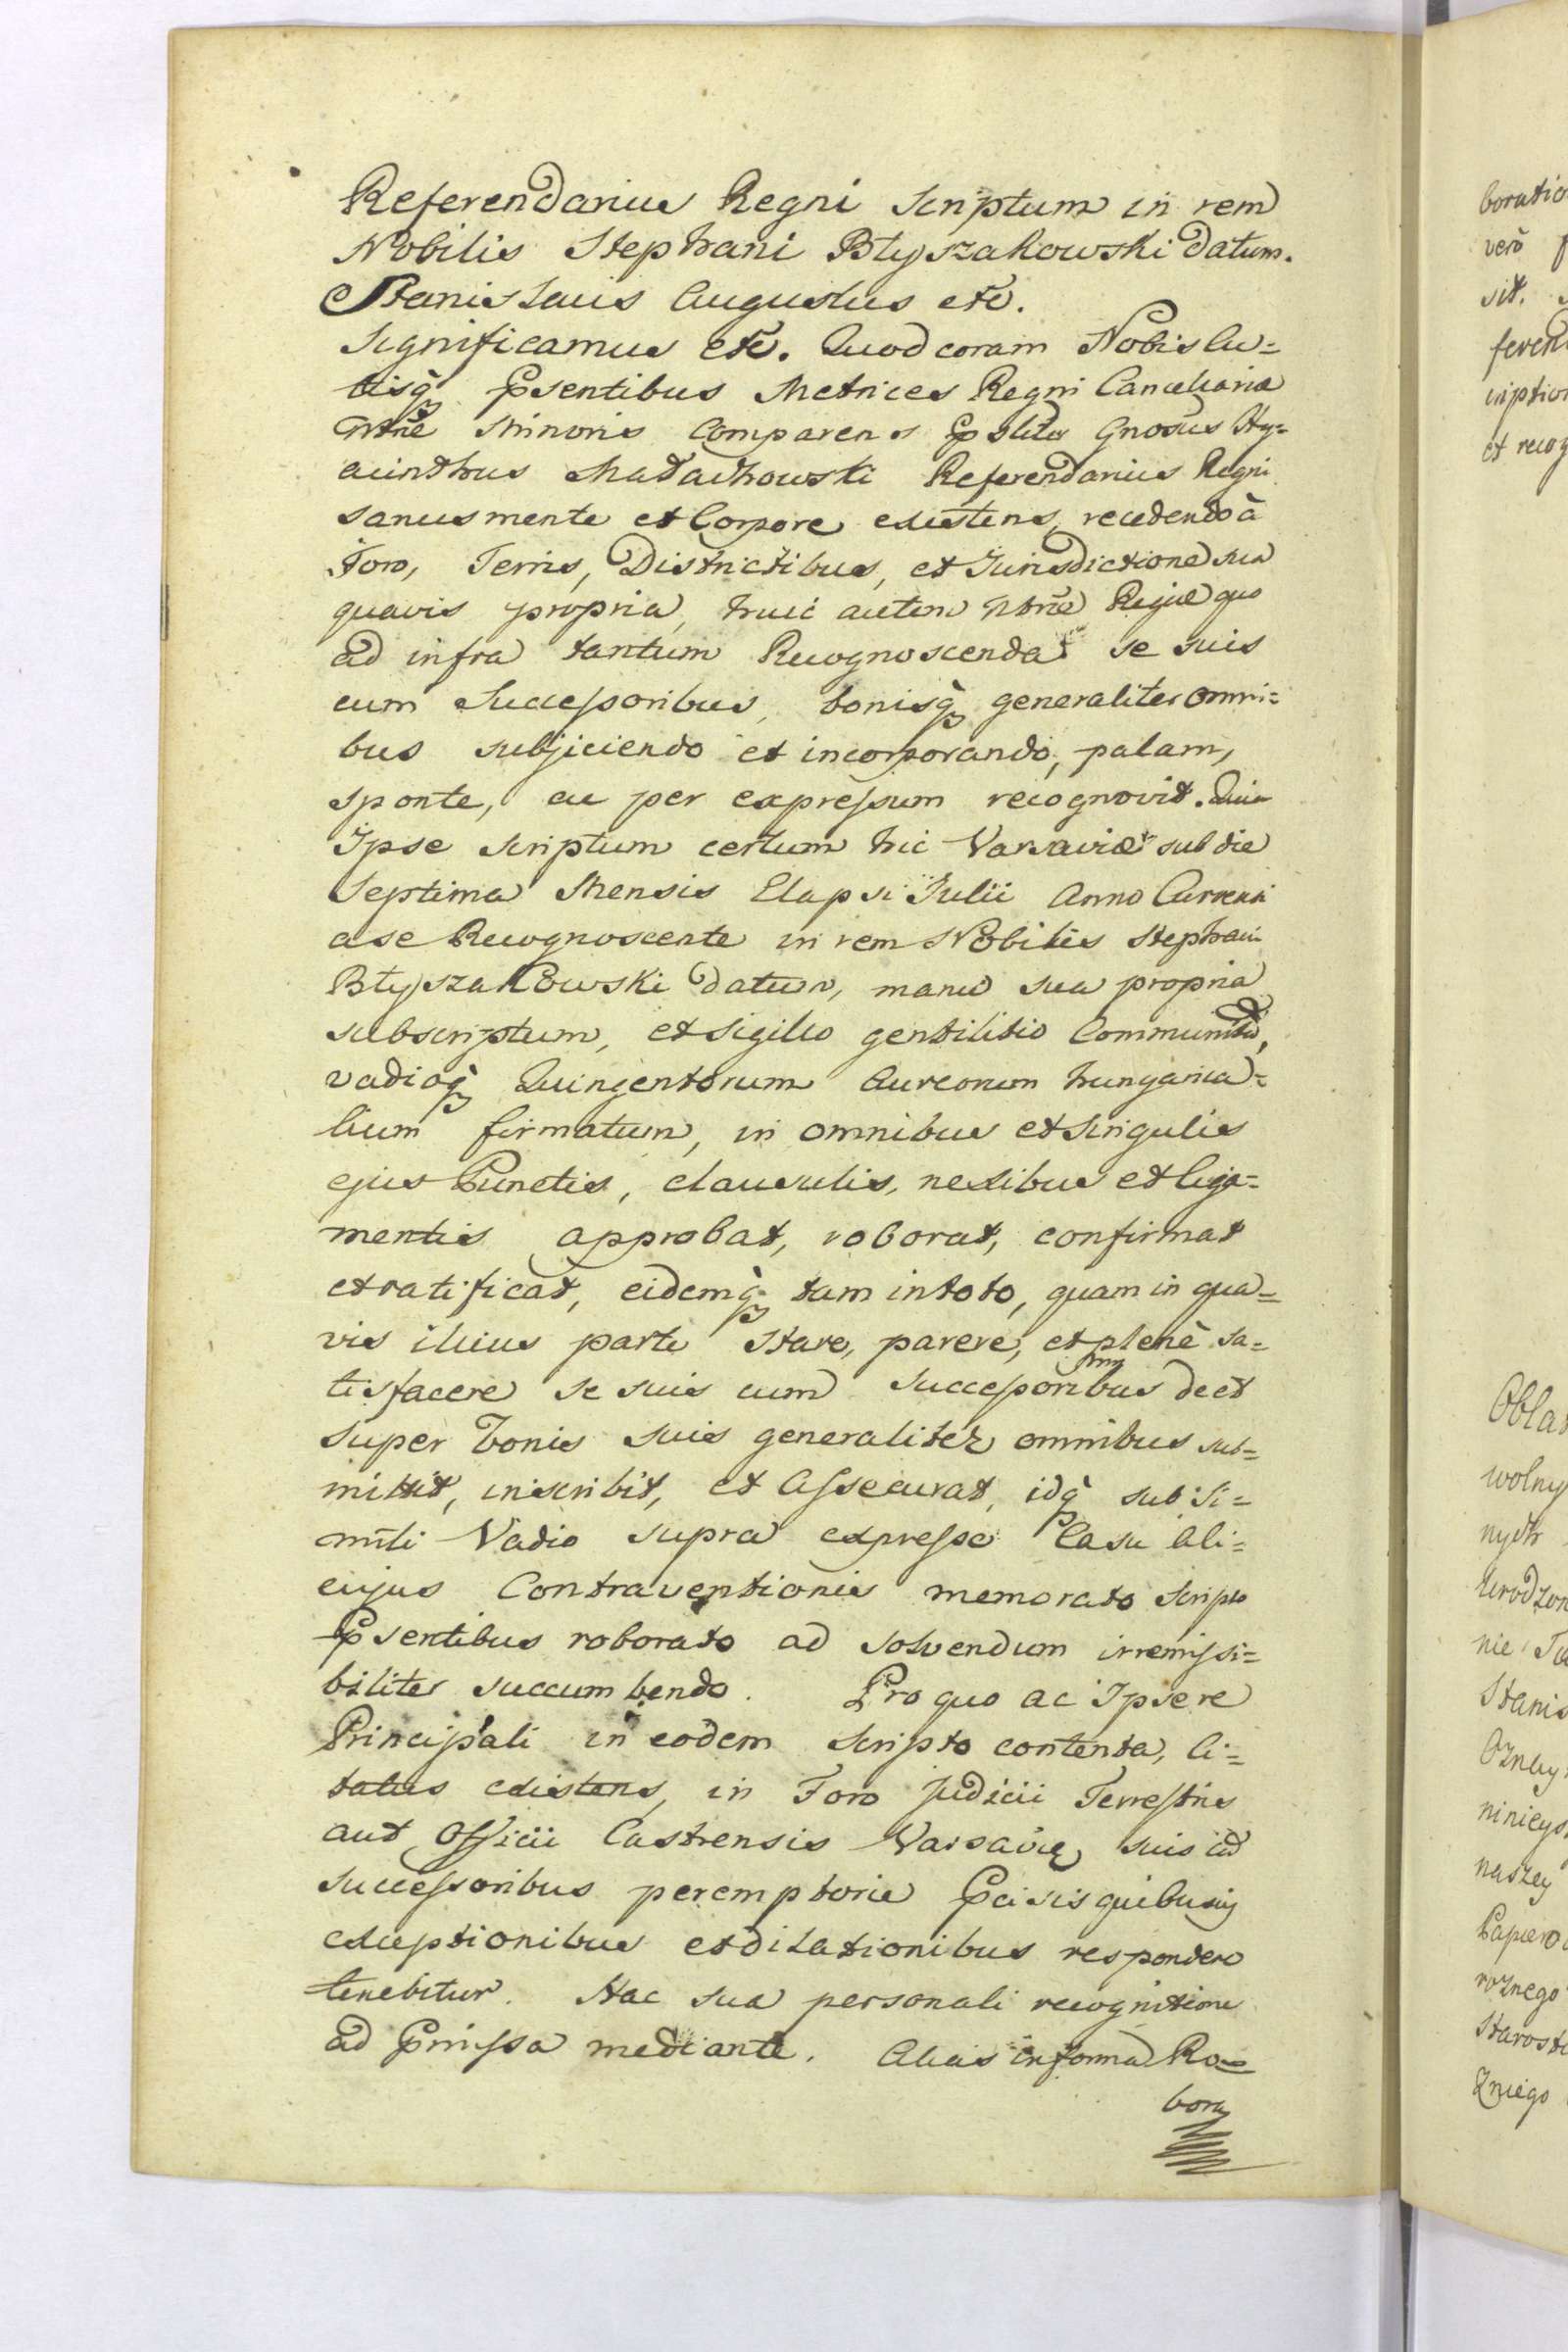 Referendarius Regni Scriptum in rem
Nobilis Stephani Błyszakowski datum.
Stanislaus Augustus etc.
Significamus etc. Quod coram Nobis Ac=
tisq̀ꝫ Psentibus Metrices Regni Cancellariæ
Ntræ Minoris Comparens Psliter Gnosus Hy=
acinthus Małachowski Referendarius Regni
sanus mente et Corpore existens, recedendo à
Foro, Terris, Districtibus, et Jurisdictione sua
quavis propria, huic autem Ntræ Regiæ quo
ad infra tantum Recognoscenda se suis
cum Successoribus, bonisq̀ꝫ generaliter omni=
bus subjiciendo et incorporando, palam,
sponte, ac per expressum recognovit. Quia
Ipse scriptum certum hic Varsaviæ sub die
Septima Mensis Elapsi Julii Anno Currenti
a se Recognoscente in rem Nobilis Stephani
Błyszakowski datum, manu sua propria
subscriptum, et sigillo gentilitio Communitũ,
vadioq̀ꝫ Quingentorum Aureorum hungarica=
lium firmatum, in omnibus et singulis
ejus Punctis, clausulis, nexibus et liga=
mentis approbat, roborat, confirmat
et ratificat, eidemq̀ꝫ tam in toto, quam in qua=
vis illius parte stare, parere, et plenè sa=
tisfacere se suis cum successoribus de et
super bonis suis generaliter omnibus sub=
mittit, inscribit, et Assecurat, idq̀ꝫ sub si=
mili Vadio supra expresso Casu Ali=
cujus Contraventionis memorato scripto
Psentibus roborato ad solvendum irremissi=
biliter succumbendo. Pro quo ac Ipse re
Principali in eodem scripto contenta, Ci=
tatus existens, in Foro Judicii Terrestris
aut Officii Castrensis Varsaviæ, suis cũ
successoribus peremptorie Pcisis quibusvis
exceptionibus et dilationibus respondere
tenebitur. Hac sua personali recognitione
ad Pmissa mediante. Alias in forma Ro=
bora
boratio
verò
sit.
feren
et recog
Obla
wolny
nych
Urodzon
nie
Stanis
naszey
Papiero
roznego
Starost
Zniego